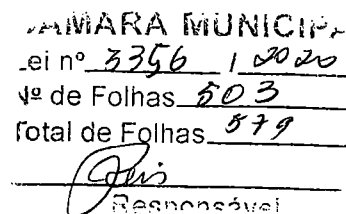 AMARA MUNICIP
ei nº 3356 / 2020
º de Folhas 503
Total de Folhas 579
Responsável